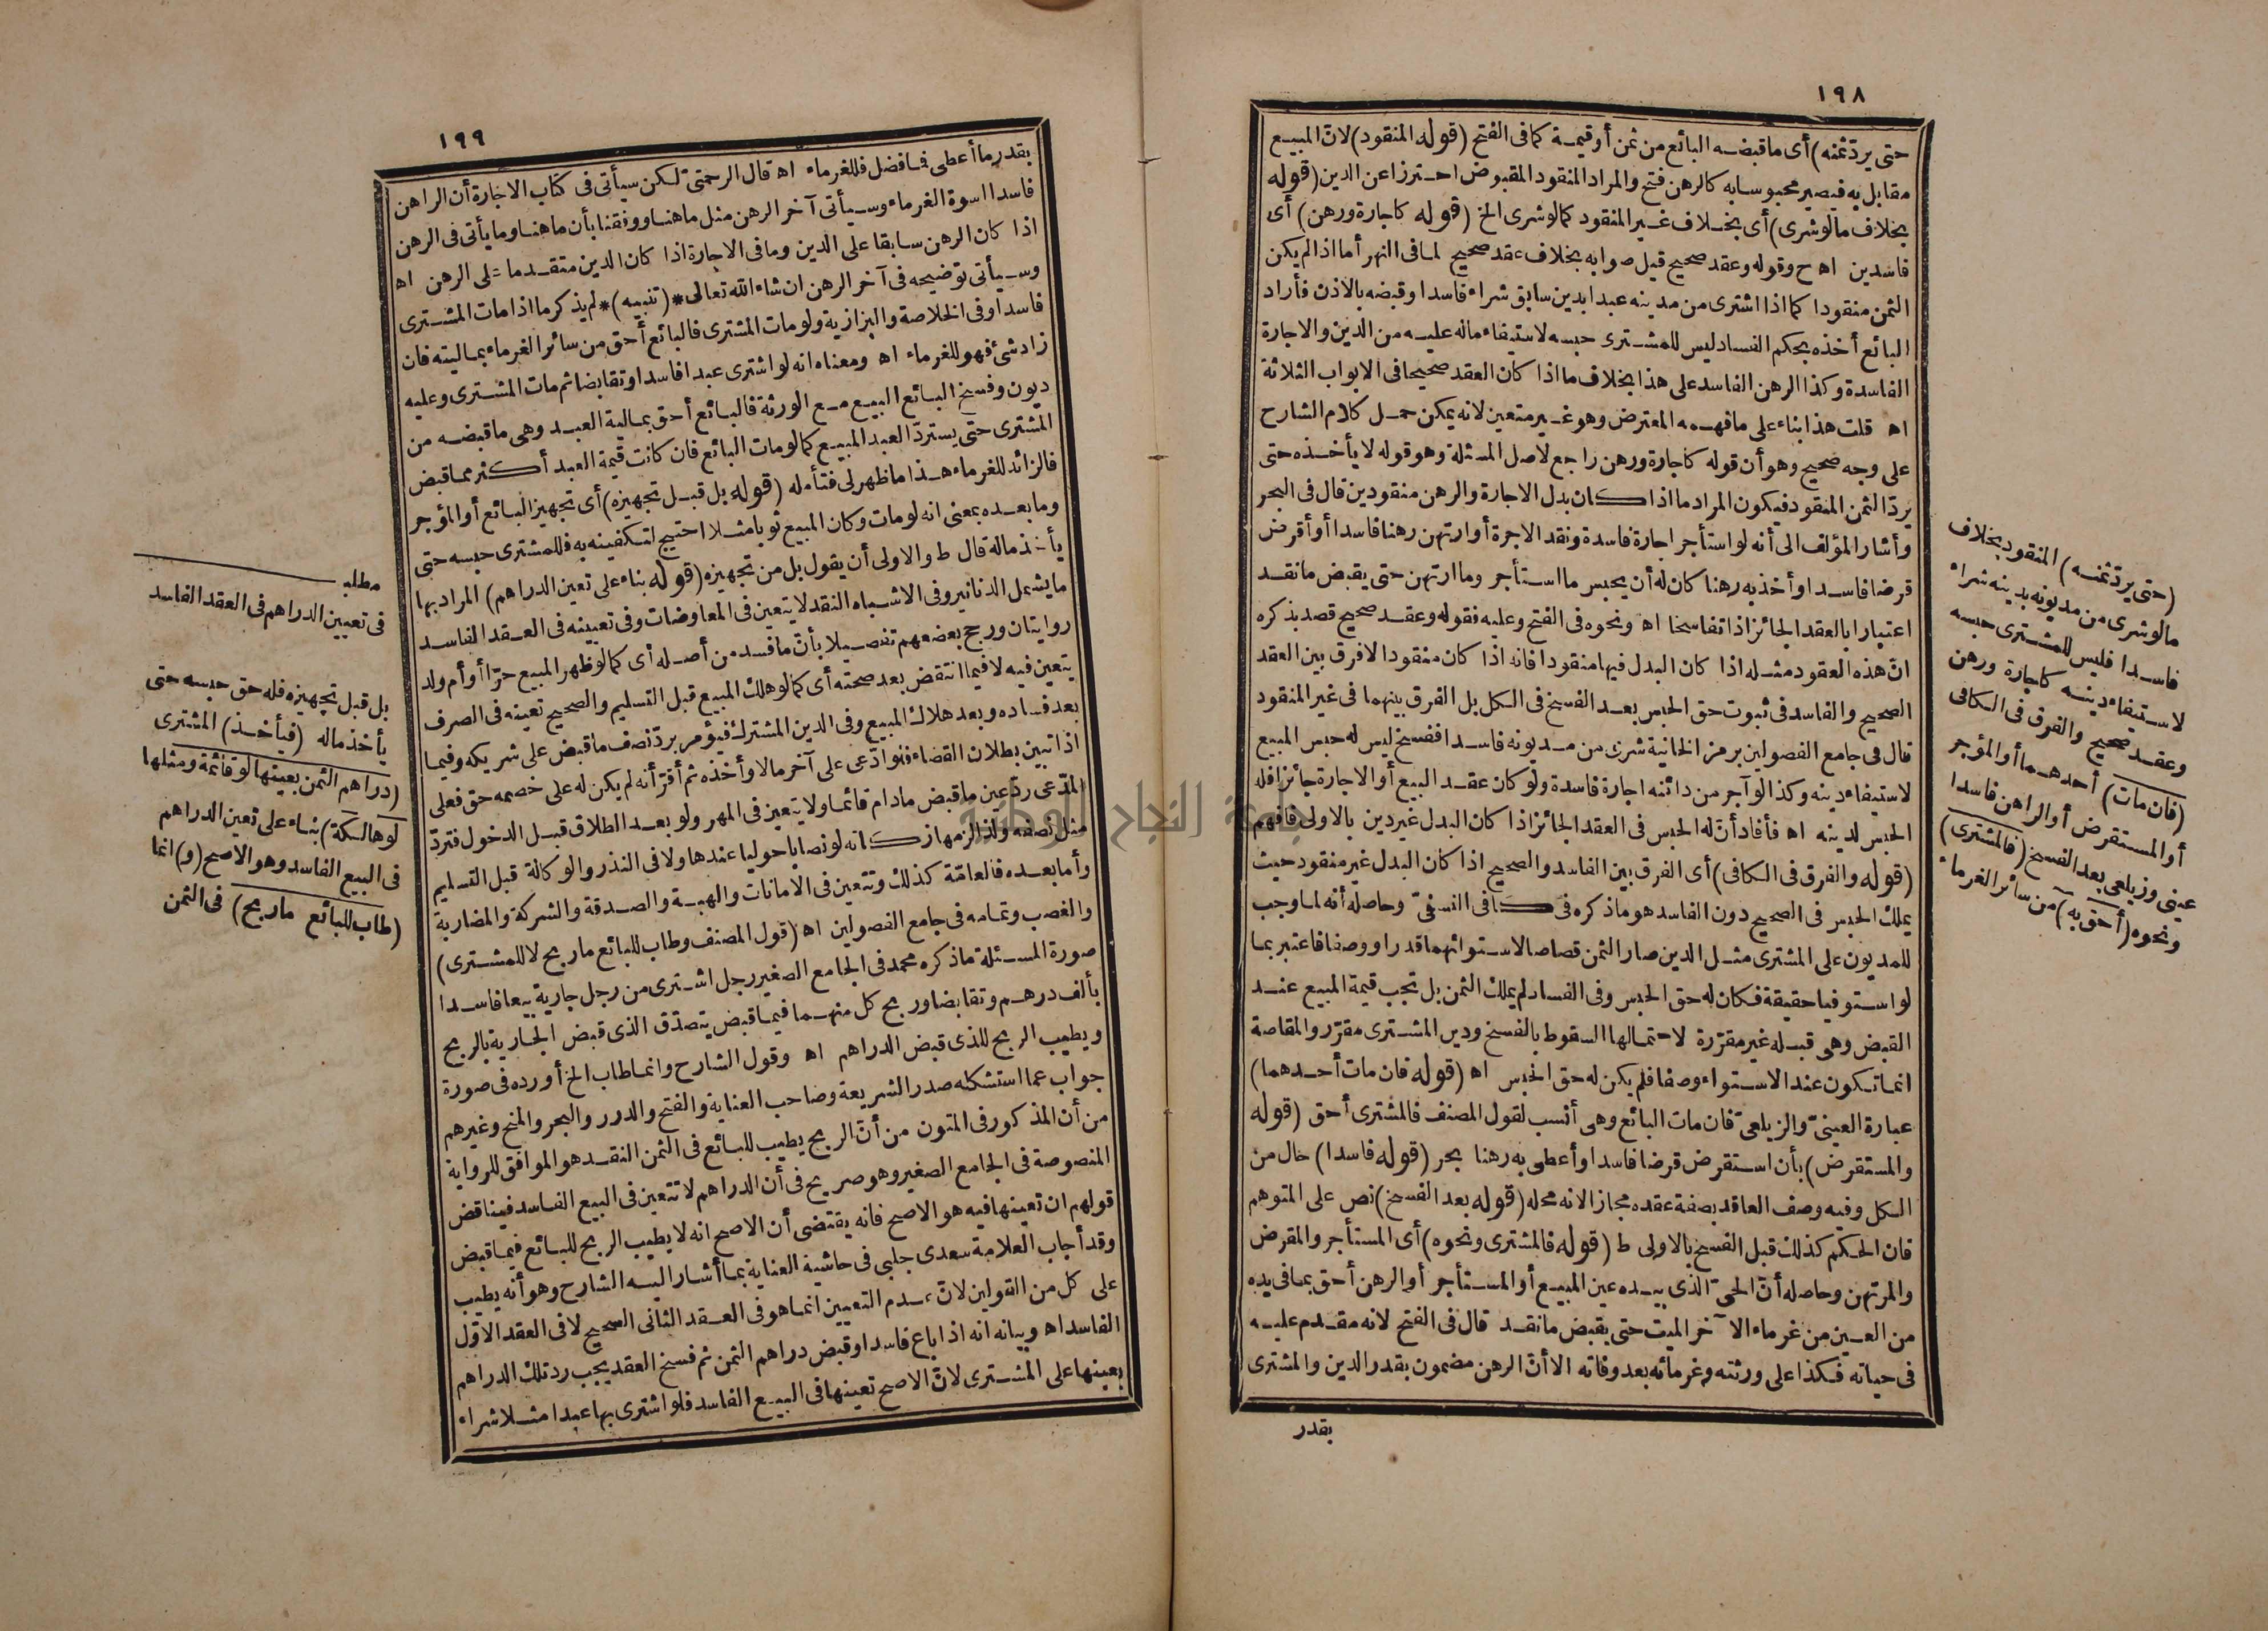 ١٩٨
حتى يردّ ثمنه) أى ما قبضه البائع من ثمن أو قيمة كما فى الفتح (قوله المنقود) لانّ المبيع
مقابل به فيصير محبوسا به كالرهن فتح والمراد المنقود المقبوض احترزا عن الدين (قوله
بخلاف مالو شرى) أى بخلاف غير المنقود كما لو شرى الخ (قوله كاجارة ورهن) أى
فاسدين اه ح وقوله وعقد صحيح قيل صوابه بخلاف عقد صحيح لما فى النهر أما اذا لم يكن
الثمن منقودا كما اذا اشترى من مدينه عبدا بدين سابق شراء فاسدا وقبضه بالاذن فأراد
البائع أخذه بحكم الفساد ليس للمشترى حبسه لاستيفاء ماله عليه من الدين والاجارة
الفاسدة وكذا الرهن الفاسد على هذا بخلاف ما اذا كان العقد صحيحا فى الابواب الثلاثة
اه قلت هذا بناء على ما فهمه المعترض وهو غير متعين لانه يمكن حمل كلام الشارح
على وجه صحيح وهو أن قوله كاجارة ورهن راجع لاصل المسئلة وهو قوله لا يأخذه حتى
يردّ الثمن المنقود فيكون المراد ما اذا كان بدل الاجارة والرهن منقودين قال فى البحر
وأشار المؤلف الى أنه لو استأجر اجارة فاسدة ونقد الاجرة أو ارتهن رهنا فاسدا أو أقرض
قرضا فاسدا وأخذ به رهنا كان له أن يحبس ما استأجر وما ارتهن حتى يقبض ما نقد
اعتبارا بالعقد الجائز اذا تفاسخا اه ونحوه فى الفتح وعليه فقوله وعقد صحيح قصد بذكره
انّ هذه العقود مثله اذا كان البدل فيها منقودا فانه اذا كان منقودا لا فرق بين العقد
الصحيح والفاسد فى ثبوت حق الحبس بعد الفسخ فى الكل بل الفرق بينهما فى غير المنقود
قال فى جامع الفصولين برمز الخانية شرى من مديونه فاسدا ففسخ ليس له حبس المبيع
لاستيفاء دينه وكذا لو آجر من دائنه اجارة فاسدة ولو كان عقد البيع أو الاجارة جائزا فله
الحبس لدينه اه فأفاد أنّ له الحبس فى العقد الجائز اذا كان البدل غير دين بالاولى فافهم
(قوله والفرق فى الكافى) أى الفرق بين الفاسد والصحيح اذا كان البدل غير منقود حيث
يملك الحبس فى الصحيح دون الفاسد هو ما ذكره فى كافى النسفىّ وحاصله أنه لما وجب
للمديون على المشترى مثل الدين صار الثمن قصاصا لاستوائهما قدرا ووصفا فاعتبر بما
لو استوفيا حقيقة فكان له حق الحبس وفى الفساد لم يملك الثمن بل تجب قيمة المبيع عند
القبض وهى قبله غير مقرّرة لاحتمالها السقوط بالفسخ ودين المشترى مقرّر والمقاصة
انما تكون عند الاستواء وصفا فلم يكن له حق الحبس اه (قوله فان مات أحدهما)
عبارة العينىّ والزيلعىّ فان مات البائع وهى أنسب لقول المصنف فالمشترى أحق (قوله
والمستقرض) بأن استقرض قرضا فاسدا وأعطى به رهنا بحر (قوله فاسدا) حال من
الكل وفيه وصف العاقد بصفة عقده مجازا لانه محله (قوله بعد الفسخ) نص على المتوهم
فان الحكم كذلك قبل الفسخ بالاولى ط (قوله فالمشترى ونحوه) أى المستأجر والمقرض
والمرتهن وحاصله أنّ الحىّ الذى بيده عين المبيع أو المستأجر أو الرهن أحق بما فى يده
من العين من غرماء الآخر الميت حتى يقبض ما نقد قال فى الفتح لانه مقدم عليه
فى حياته فكذا على ورثته وغرمائه بعد وفاته الا أنّ الرهن مضمون بقدر الدين والمشترى
بقدر
(حتى يردّ ثمنه) المنقود بخلاف
مالو شرى من مديونه بدينه شراء
فاسدا فليس للمشترى حبسه
لاستيفاء دينه كاجارة ورهن
وعقد صحيح والفرق فى الكافى
(فان مات) أحدهما أو المؤجر
أو المستقرض أو الراهن فاسدا
عينى وزيلعى بعد الفسخ (فالمشترى)
ونحوه (أحق به) من سائر الغرماء
١٩٩
بقدر ما أعطى فما فضل فللغرماء اه قال الرحمتىّ لكن سيأتى فى كتاب الاجارة أن الراهن
فاسدا اسوة الغرماء وسيأتى آخر الرهن مثل ما هنا ووفقنا بأن ما هنا وما يأتى فى الرهن
اذا كان الرهن سابقا على الدين وما فى الاجارة اذا كان الدين متقدما على الرهن اه
وسيأتى توضيحه فى آخر الرهن ان شاء الله تعالى * (تنبيه) * لم يذكر ما اذا مات المشترى
فاسدا وفى الخلاصة والبزازية ولو مات المشترى فالبائع أحق من سائر الغرماء بماليته فان
زاد شئ فهو للغرماء اه ومعناه انه لو اشترى عبدا فاسدا وتقابضا ثم مات المشترى وعليه
ديون وفسخ البائع البيع مع الورثة فالبائع أحق بمالية العبد وهى ما قبضه من
المشترى حتى يستردّ العبد المبيع كما لو مات البائع فان كانت قيمة العبد أكثر مما قبض
فالزائد للغرماء هذا ما ظهر لى فتأمله (قوله بل قبل تجهيزه) أى تجهيز البائع أو المؤجر
وما بعده بمعنى انه لو مات وكان المبيع ثوبا مثلا احتيج لتكفينه به فللمشترى حبسه حتى
يأخذ ماله قال ط والاولى أن يقول بل من تجهيزه (قوله بناء على تعين الدراهم) المراد بها
ما يشمل الدنانير وفى الاشباه النقد لا يتعين فى المعاوضات وفى تعيينه فى العقد الفاسد
روايتان ورجح بعضهم تفصيلا بأنّ ما فسد من أصله أى كما لو ظهر المبيع حرّا أو أم ولد
يتعين فيه لا فيما انتقض بعد صحته أى كما لو هلك المبيع قبل التسليم والصحيح تعينه فى الصرف
بعد فساده وبعد هلاك المبيع وفى الدين المشترك فيؤمر بردّ نصف ما قبض على شريكه وفيما
اذا تبين بطلان القضاء فلو ادّعى على آخر مالا وأخذه ثم أقرّ أنه لم يكن له على خصمه حق فعلى
المدّعى ردّ عين ما قبض مادام قائما ولا يتعين فى المهر ولو بعد الطلاق قبل الدخول فتردّ
مثل نصفه ولذا لزمها زكاته لو نصابا حوليا عندها ولا فى النذر والوكالة قبل التسليم
وأما بعده فالعامّة كذلك وتتعين فى الامانات والهبة والصدقة والشركة والمضاربة
والغصب وتمامه فى جامع الفصولين اه (قول المصنف وطاب للبائع ما ربح لا للمشترى)
صورة المسئلة ما ذكره محمد فى الجامع الصغير رجل اشترى من رجل جارية بيعا فاسدا
بألف درهم وتقابضا وربح كل منهما فيما قبض يتصدّق الذى قبض الجارية بالربح
ويطيب الربح للذى قبض الدراهم اه وقول الشارح وانما طاب الخ أورده فى صورة
جواب عما استشكله صدر الشريعة وصاحب العناية والفتح والدرر والبحر والمنح وغيرهم
من أن المذكور فى المتون من أنّ الربح يطيب للبائع فى الثمن النقد هو الموافق للرواية
المنصوصة فى الجامع الصغير وهو صريح فى أن الدراهم لا تتعين فى البيع الفاسد فيناقض
قولهم ان تعينها فيه هو الاصح فانه يقتضى أن الاصح انه لا يطيب الربح للبائع فيما قبض
وقد أجاب العلامة سعدى جلبى فى حاشية العناية بما أشار اليه الشارح وهو أنه يطيب
على كل من القولين لانّ عدم التعيين انما هو فى العقد الثانى الصحيح لا فى العقد الاوّل
الفاسد اه وبيانه انه اذا باع فاسدا وقبض دراهم الثمن ثم فسخ العقد يجب رد تلك الدراهم
بعينها على المشترى لانّ الاصح تعينها فى البيع الفاسد فلو اشترى بها عبدا مثلا شراء
مطلب
فى تعيين الدراهم فى العقد الفاسد
بل قبل تجهيزه فله حق حبسه حتى
يأخذ ماله (فيأخذ) المشترى
(دراهم الثمن بعينها لو قائمة ومثلها
لو هالكة) بناء على تعين الدراهم
فى البيع الفاسد وهو الاصح (و) انما
(طاب للبائع ما ربح) فى الثمن
جامعة النجاح الوطنية